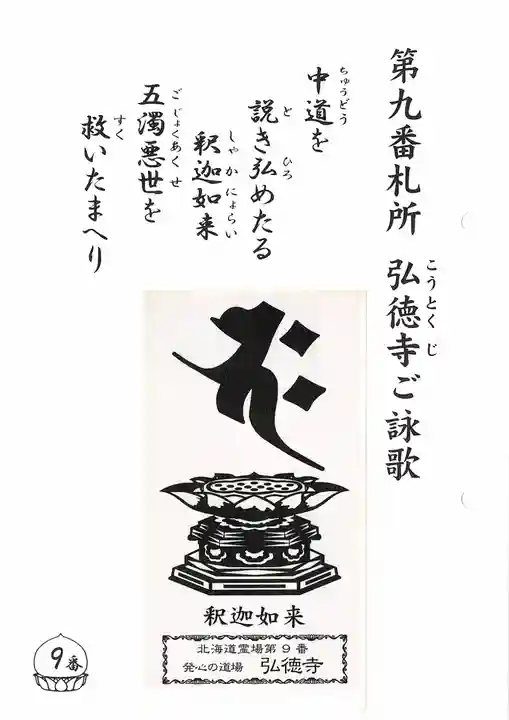 第九番札所 弘徳寺ご詠歌
こうとくじ
中道を
ちゅうどう
説き弘めたる
とひろ
釈迦如来
しゃかにょらい
五濁悪世を
ごじょくあくせ
救いたまへり
すく
𑖥𑖾
釈迦如来
北海道霊場第9番
発心の道場 弘徳寺
9番